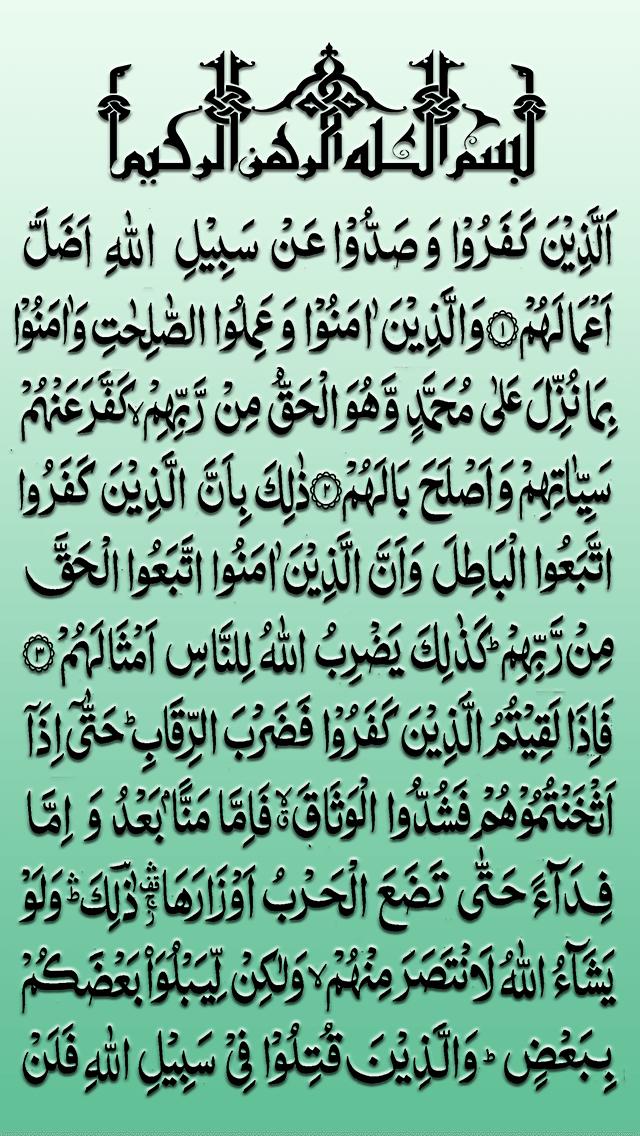 بسم الله الرحمن الرحيم
اَلَّذِيْنَ كَفَرُوْا وَ صَدُّوْا عَنْ سَبِيْلِ اللّٰهِ اَضَلَّ
اَعْمَالَهُمْ ۝۱ وَالَّذِيْنَ اٰمَنُوْا وَ عَمِلُوا الصّٰلِحٰتِ وَاٰمَنُوْا
بِمَا نُزِّلَ عَلٰى مُحَمَّدٍ وَّهُوَ الْحَقُّ مِنْ رَّبِّهِمْ ۙ كَفَّرَ عَنْهُمْ
سَيِّاٰتِهِمْ وَاَصْلَحَ بَالَهُمْ ۝۲ ذٰلِكَ بِاَنَّ الَّذِيْنَ كَفَرُوا
اتَّبَعُوا الْبَاطِلَ وَاَنَّ الَّذِيْنَ اٰمَنُوا اتَّبَعُوا الْحَقَّ
مِنْ رَّبِّهِمْ ؕ كَذٰلِكَ يَضْرِبُ اللّٰهُ لِلنَّاسِ اَمْثَالَهُمْ ۝۳
فَاِذَا لَقِيْتُمُ الَّذِيْنَ كَفَرُوْا فَضَرْبَ الرِّقَابِ ؕ حَتّٰۤى اِذَاۤ
اَثْخَنْتُمُوْهُمْ فَشُدُّوا الْوَثَاقَ ۙ فَاِمَّا مَنًّۢا بَعْدُ وَ اِمَّا
فِدَآءً حَتّٰى تَضَعَ الْحَرْبُ اَوْزَارَهَا ۛۚ ذٰلِكَ ۛؕ وَلَوْ
يَشَآءُ اللّٰهُ لَانْتَصَرَ مِنْهُمْ ۙ وَلٰكِنْ لِّيَبْلُوَا۠ بَعْضَكُمْ
بِبَعْضٍ ؕ وَالَّذِيْنَ قُتِلُوْا فِىْ سَبِيْلِ اللّٰهِ فَلَنْ